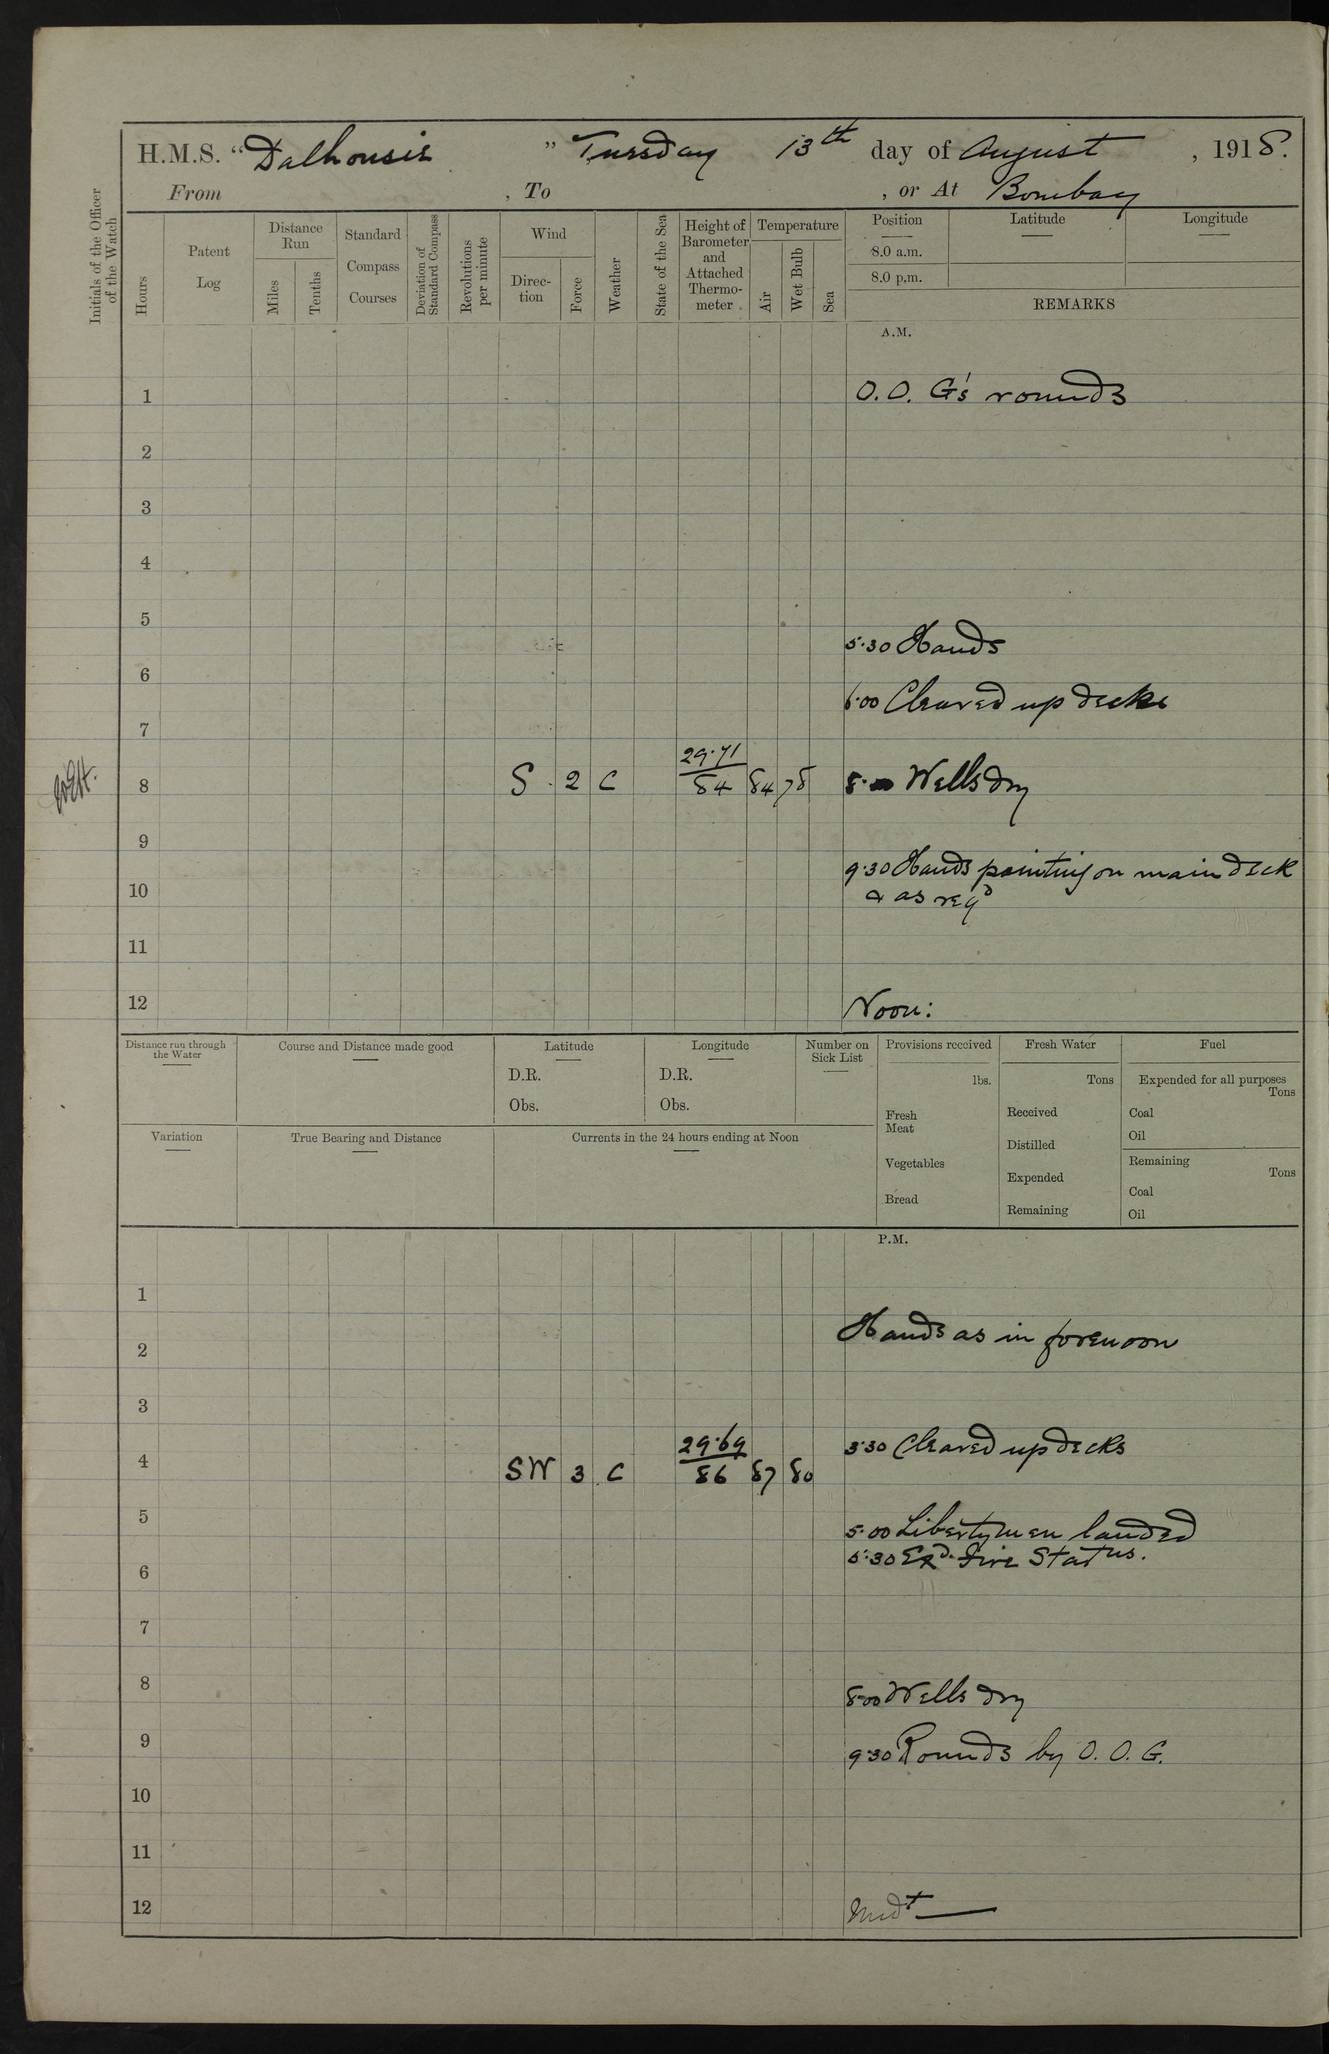 H.M.S. “Dalhousie” Tuesday 13th day of August, 1918.
From , To , or At Bombay
Initials of the Officer of the Watch
Hours
Patent Log
Distance Run
Miles
Tenths
Standard Compass Courses
Deviation of Standard Compass
Revolutions per minute
Wind
Direction
Force
Weather
State of the Sea
Height of Barometer and Attached Thermometer
Temperature
Air
Wet Bulb
Sea
Position Latitude Longitude
8.0 a.m.
8.0 p.m.
REMARKS
A.M.
1 O.O.G's rounds
2
3
4
5
5.30 Hands
6
6.00 Cleared up decks
7
29.71
8 S 2 C 84 84 78 8. Wells dry
9
9.30 Hands painting on main deck
10 & as reqd
11
12 Noon:
Distance run through the Water
Course and Distance made good
Latitude
D.R.
Obs.
Longitude
D.R.
Obs.
Number on Sick List
Provisions received
lbs.
Fresh Meat
Vegetables
Bread
Fresh Water
Tons
Received
Distilled
Expended
Remaining
Fuel
Expended for all purposes
Tons
Coal
Oil
Remaining
Tons
Coal
Oil
Variation
True Bearing and Distance
Currents in the 24 hours ending at Noon
P.M.
1
Hands as in forenoon
2
3
29.69 3.30 Cleared up decks
4 SW 3 C 86 87 80
5
5.00 Libertymen landed
5.30 Exd. Fire Status.
6
7
8 8.00 Wells dry
9 9.30 Rounds by O.O.G.
10
11
12 Midt